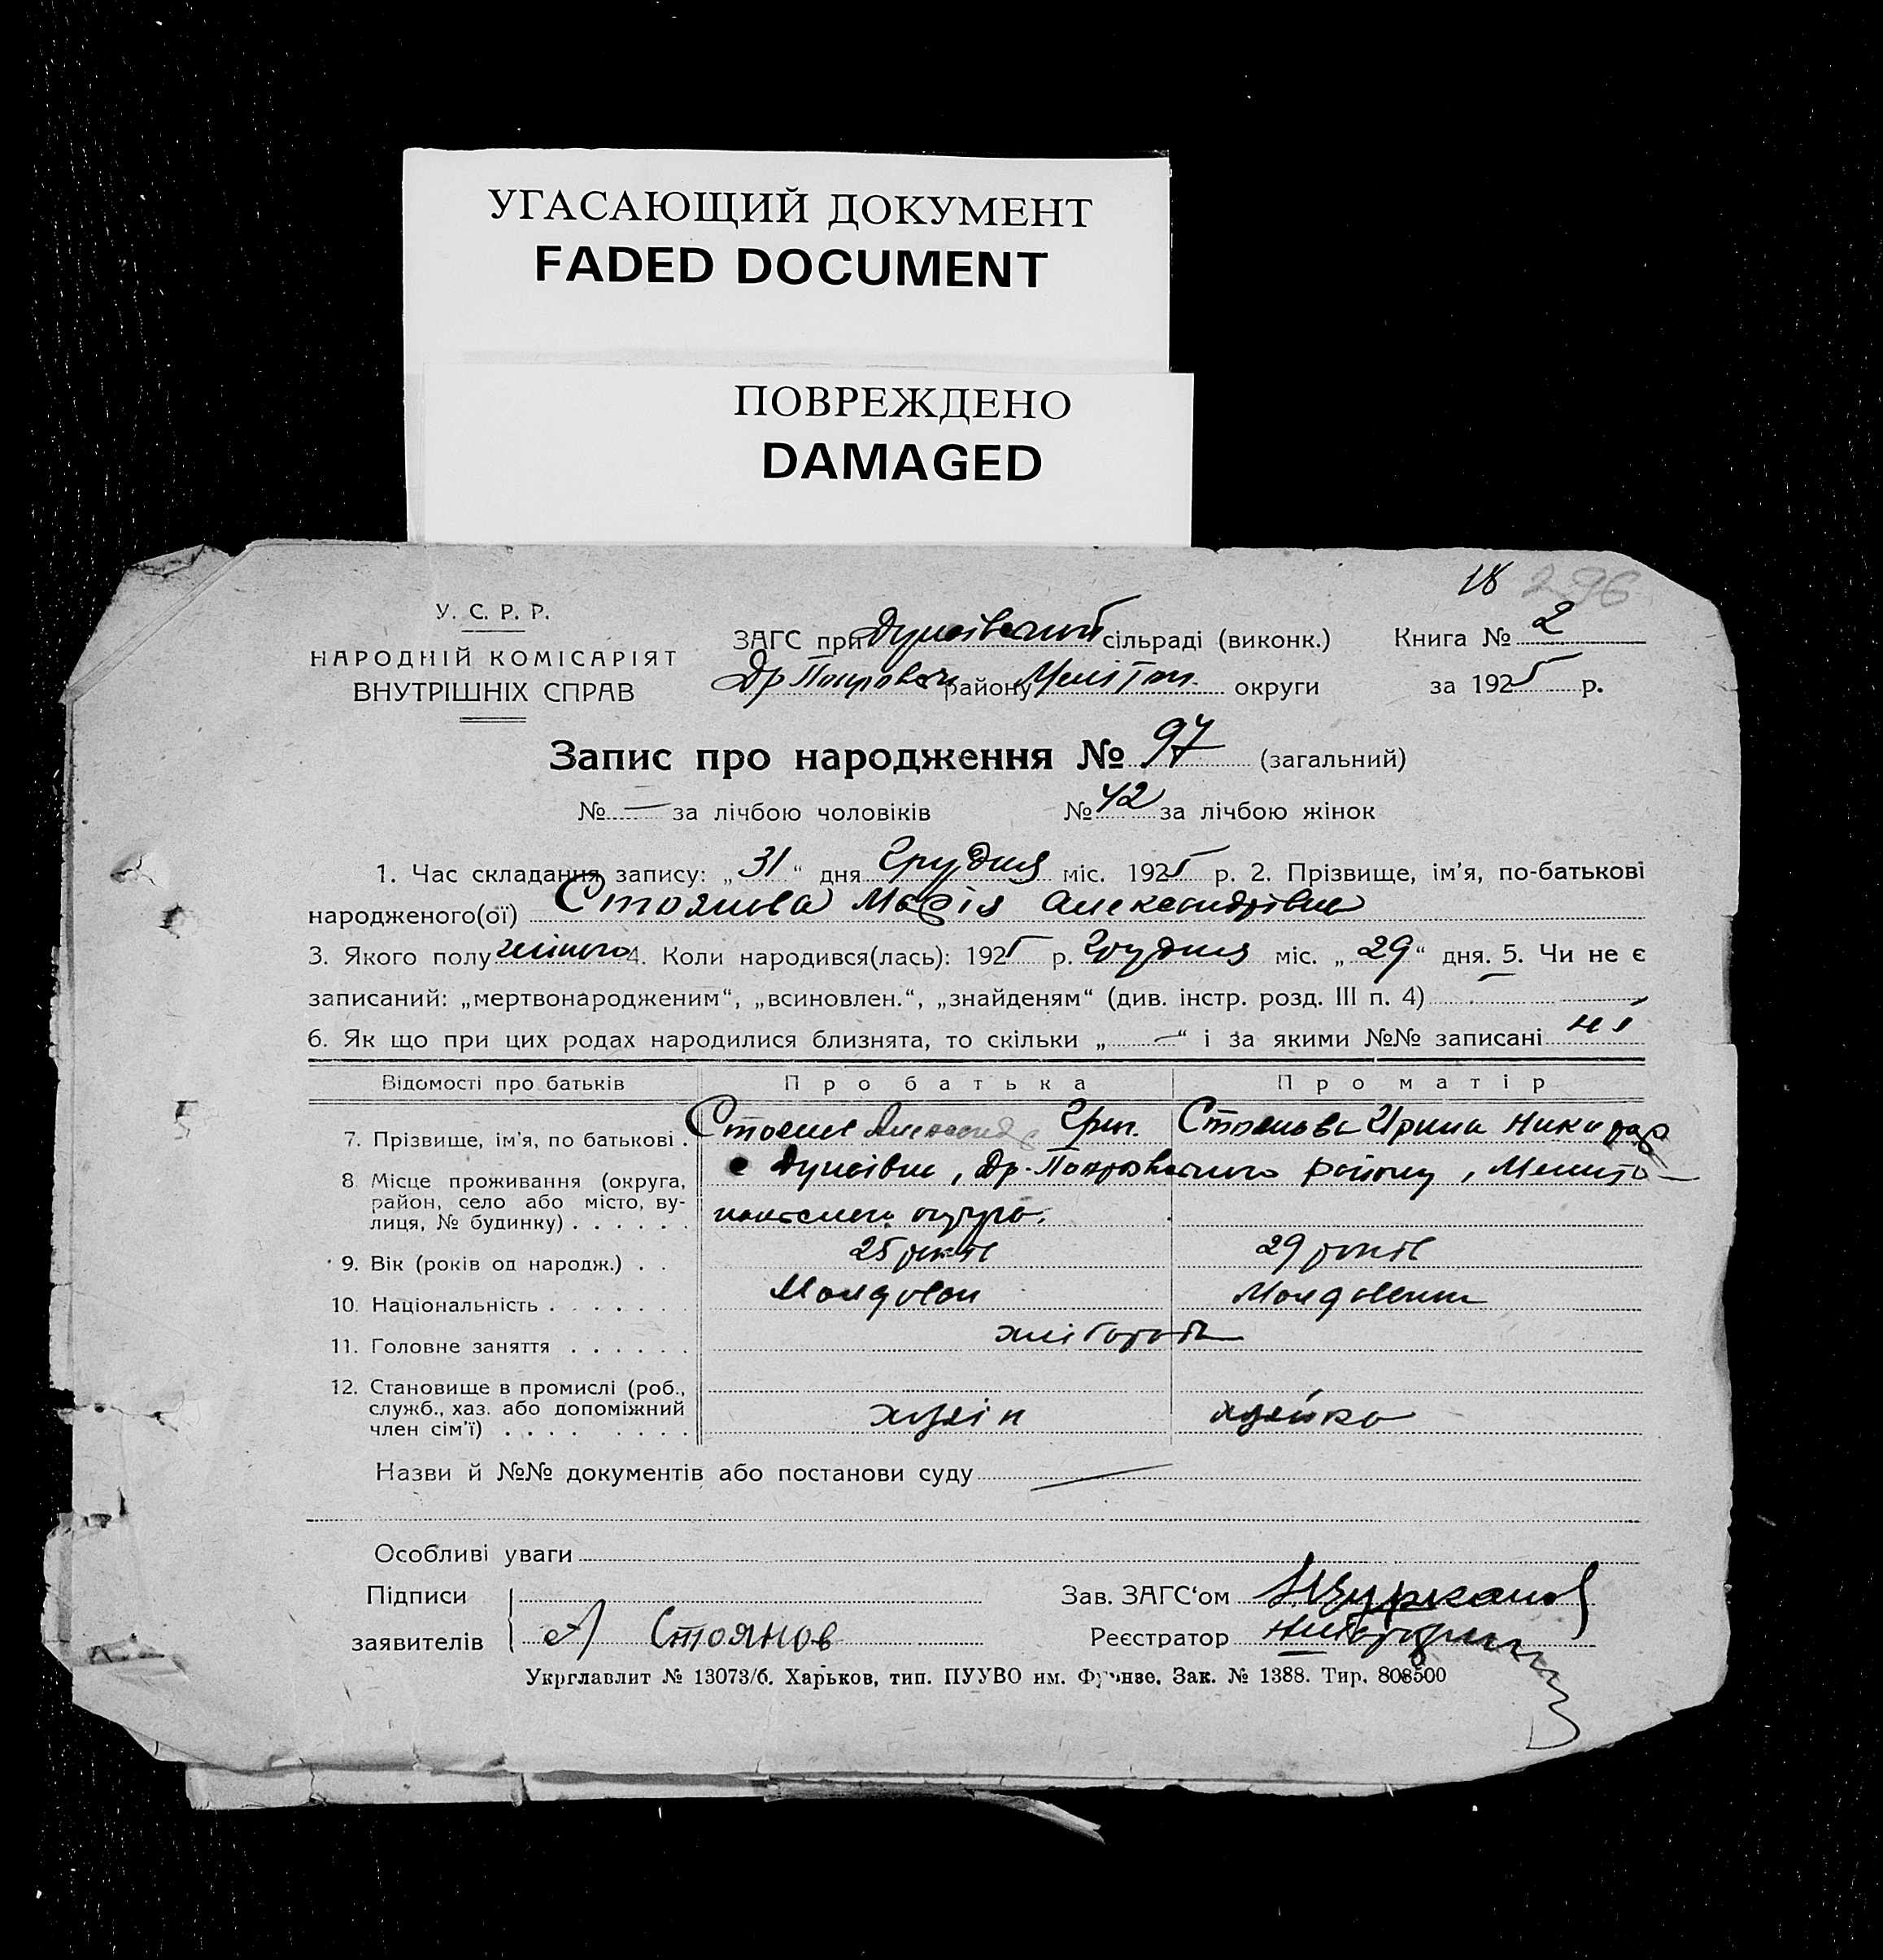 УГАСАЮЩИЙ ДОКУМЕНТ
FADED DOCUMENT
ПОВРЕЖДЕНО
DAMAGED
18 296
У. С. Р. Р.
НАРОДНІЙ КОМІСАРІЯТ
ВНУТРІШНІХ СПРАВ
ЗАГС при Дунаївський сільраді (виконк.) Книга № 2
Др Покровськ району Мелітоп. округи за 1925 р.
Запис про народження № 97 (загальний)
№ — за лічбою чоловіків № 42 за лічбою жінок
1. Час складання запису: „31“ дня Грудня міс. 1925 р. 2. Прізвище, ім'я, по-батькові
народженого(ої) Стоянова Марія Александрівна
3. Якого полу жіного 4. Коли народився(лась): 1925 р. Грудня міс. „29“ дня. 5. Чи не є
записаний: „мертвонародженим“, „всиновлен.“, „знайденям“ (див. інстр. розд. III п. 4) —
6. Як що при цих родах народилися близнята, то скільки „—“ і за якими №№ записані ні
Відомості про батьків Про батька Про матір
7. Прізвище, ім'я, по батькові . Стоянов Александр Григ. Стоянова Ирина Никифор
8 Місце проживання (округа, район, село або місто, вулиця, № будинку) . . . . . . с Дунаївка, Др-Покровського району, Меліто-
польської округи.
9. Вік (років од народж.) . . 25 років 29 років
10. Національність . . . . . . Молдован Молдованка
11. Головне заняття . . . . . . хлібороб
12. Становище в промислі (роб.,
служб., хаз. або допоміжний
член сім'ї) . . . . . . . . хазяін хазяйка
Назви й №№ документів або постанови суду —
Особливі уваги
Підписи Зав. ЗАГС‘ом
заявителів А Стоянов Реєстратор
Укрглавлит № 13073/б. Харьков, тип. ПУУВО им. Фрунзе. Зак. № 1388. Тир. 808500